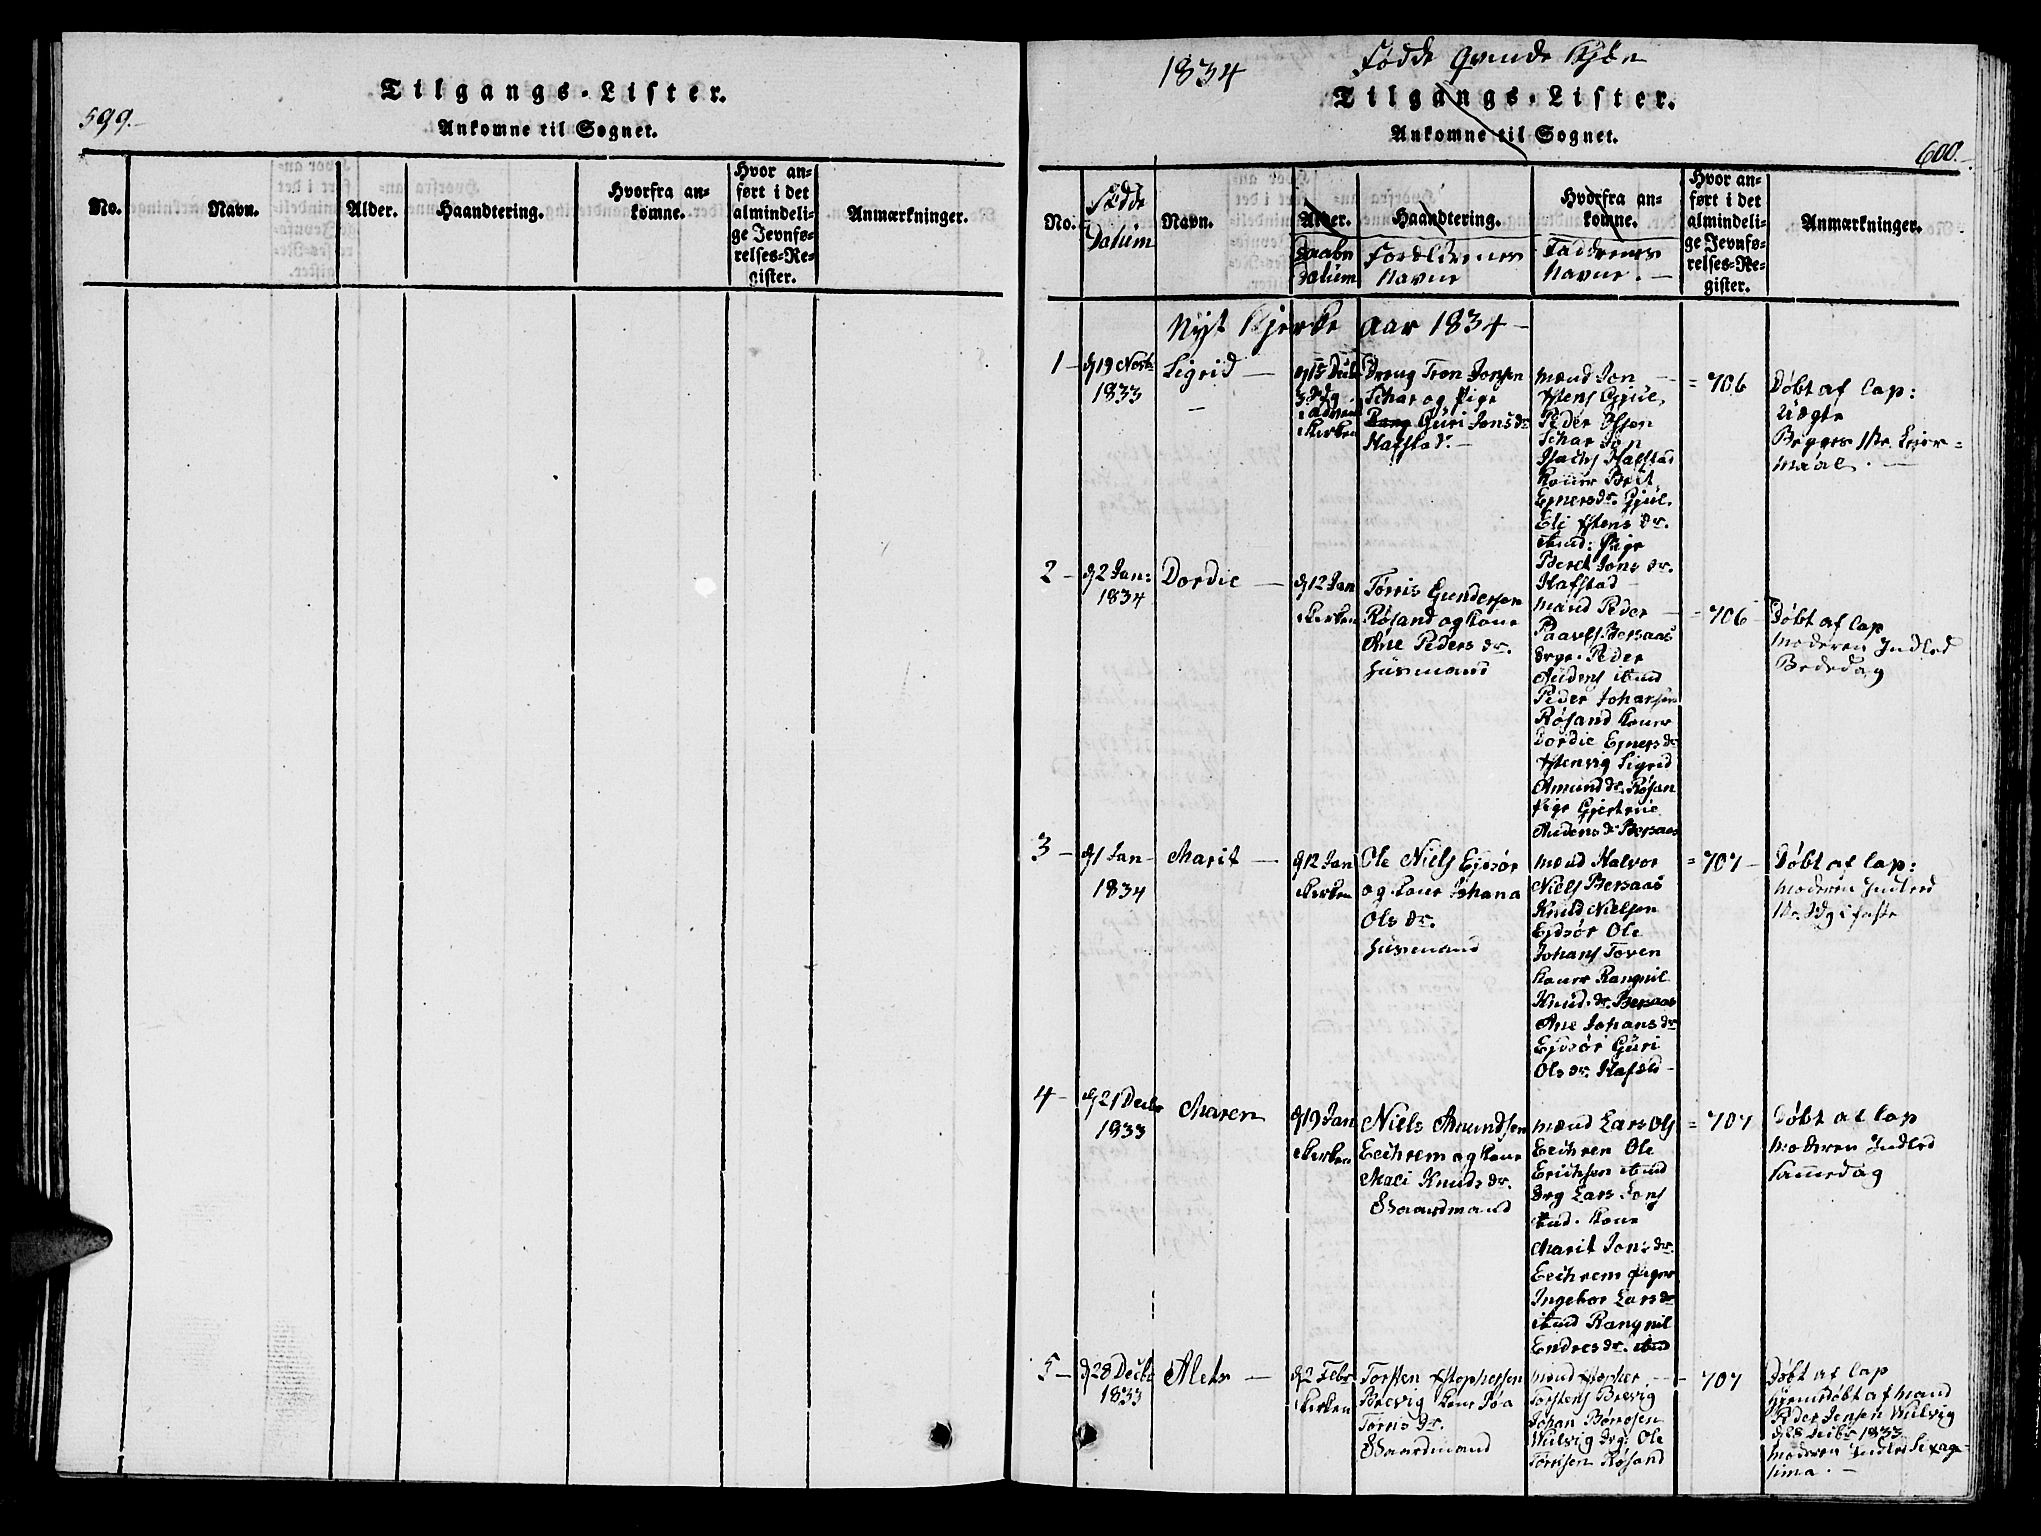 599.
Tilgangs-Lister.
Ankomne til Sognet.
No.
Navn.
Alder.
Haandtering.
Hvorfra an=
komne.
Hvor an=
ført i det
almindeli=
ge Jevnfø=
relses=Re=
gister.
Anmærkninger.
1834
Fødde Qvinde Kjøn
Tilgangs-Lister.
Ankomne til Sognet.
600.
No.
Fødde
Datum
Navn.
Alder.
Daabs
Datum
Haandtering.
Forældrenes
Navne
Hvorfra an=
komne.
Faddrenes
Navne.
Hvor an=
ført i det
almindeli=
ge Jevnfø=
relses=Re=
gister.
Anmærkninger.
Nyt Kjerke aar 1834
1
d 19 Novbr
1833
Sigrid
d 15 Decb
3 Sdg
i Advent
i Kirken
Dreng Tron Jonsen
Schar og Pige
Guri Jonsdr
Hafstad.
mænd Jon
Istens Gjul,
Peder Olsen
Schar Jon
Isachs Hafstad
Koner Beret
Ejnersdr. Gjul.
Eli Istens dr.
ibid: Pige
Beret Jons dr.
Hafstad
= 706
Døbt af Cap:
Uægte
Begges 1te Leier=
maal.
2
d 2 Jan:
1834
Dordie
d 12 Jan
i Kirken
Tørris Gundersen
Røsand og Kone
Ane Peders dr.
Huusmand
mænd Peder
Paavels Bersaas
drge. Peder
Audens ibid
Peder Johansen
Røsand Koner
Dordie Ejnersdr
Istenvig Sigrid
Amundsdr. Røsan
Pige Gjertrue
Audens dr Bersaas
= 706
Døbt af Cap
moderen Indled
Bededag
3
d 1 Jan
1834
Marit
d 12 Jan
i Kirken
Ole Niels Ejdsør
og Kone Johana
Ols dr.
Huusmand
mænd Halvor
Niels Bersaas
Knud Nielsen
Ejdsør Ole
Johans Toven
Koner Rangnil
Knud. dr. Bersaas
Ane Johans dr
Ejdsør Guri
Ols dr. Hafsli
= 707
Døbt af Cap:
moderen Indled
1te Sdg i faste
4
d 21 Decbr
1833
Maren
d 19 Jan
i Kirken
Niels Amundsen
Eechrem og Kone
Mali Knuds dr.
Gaardmand
mænd Lars Ols
Eechren Ole
Erichsen ibid
drg Lars Jons
ibid. Kone
Marit Jons dr.
Eechrem Piger
Ingebor Larsdr
ibid Rangnil
Endresdr. ibid
= 707
Døbt af Cap
moderen Indled
samedag
5
d 28 Decbr
1833
Aleth
d 2 Febr
i Kirken
Torsten Istophersen
Brevig Kone Joa
Tørris dr.
Gaardmand
mænd Istopher
Torstens Brevig
Johan Børresen
Wulvig drg: Ole
Tørrisen Røsand
707
Døbt af Cap
hjemdøbt af mand
Peder Jensen Wulvig
d 28 Decbr 1833
moderen Indled Sexage=
sima.